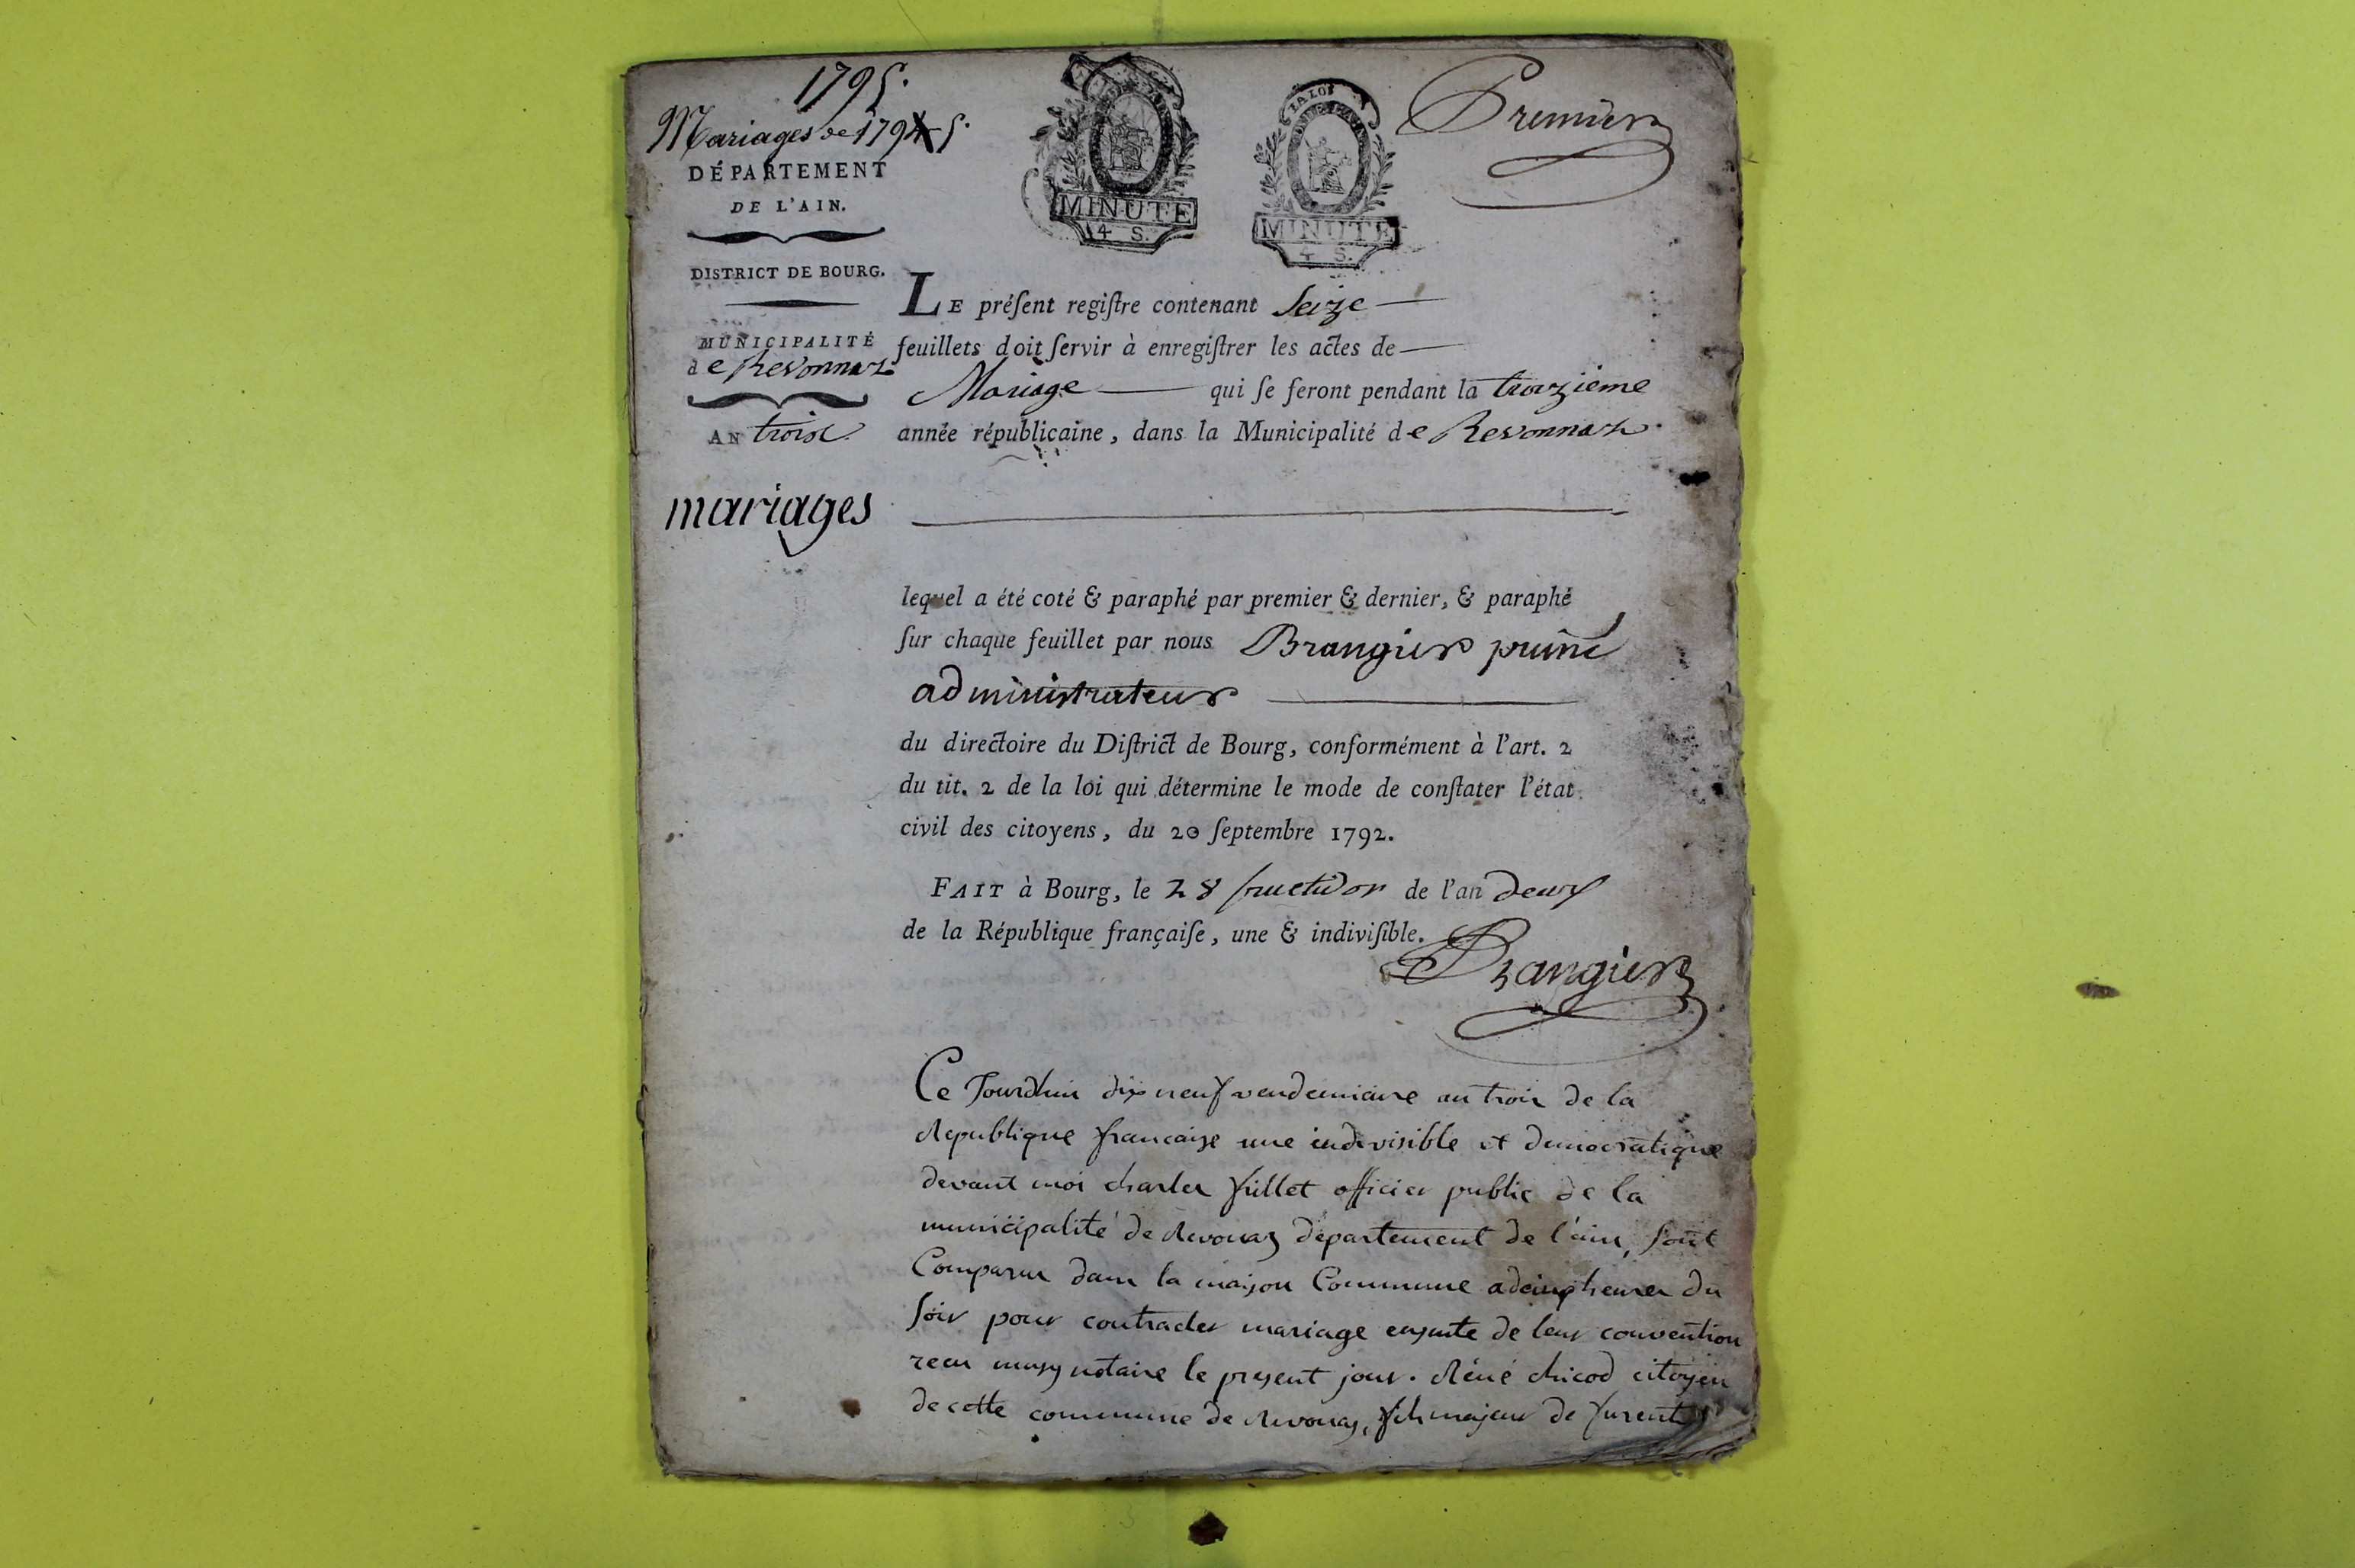 1795.
Mariages de 1794 5.
DÉPARTEMENT
DE L'AIN.
DISTRICT DE BOURG.
MUNICIPALITÉ
de Revonnaz
AN trois
mariages
LA LOI
MINUTE
4 S.
LA LOI
MINUTE
4 S.
Premier
LE préſent regiſtre contenant Seize
feuillets doit ſervir à enregiſtrer les actes de
Mariage qui ſe feront pendant la troizième
année républicaine, dans la Municipalité de Revonnaz.
lequel a été coté & paraphé par premier & dernier, & paraphé
ſur chaque feuillet par nous Brangier puiné
administrateur
du directoire du Diſtrict de Bourg, conformément à l'art. 2
du tit. 2 de la loi qui détermine le mode de conſtater l'état
civil des citoyens, du 20 ſeptembre 1792.
FAIT à Bourg, le 28 fructidor de l'an deux
de la République françaiſe, une & indiviſible.
Brangier
Ce Jourdhui dix neuf vendemiaire an trois de la
Republique francaise une indivisible et democratique
devant moi charles fillet officier public de la
municipalité de Revonaz departement de l'ain, sont
Comparus dans la maison Commune a heures du
soir pour contracter mariage ensuite de leur convention
recu notaire le present jour. Réné chicod citoyen
de cette commune de Revonaz, fils majeur de